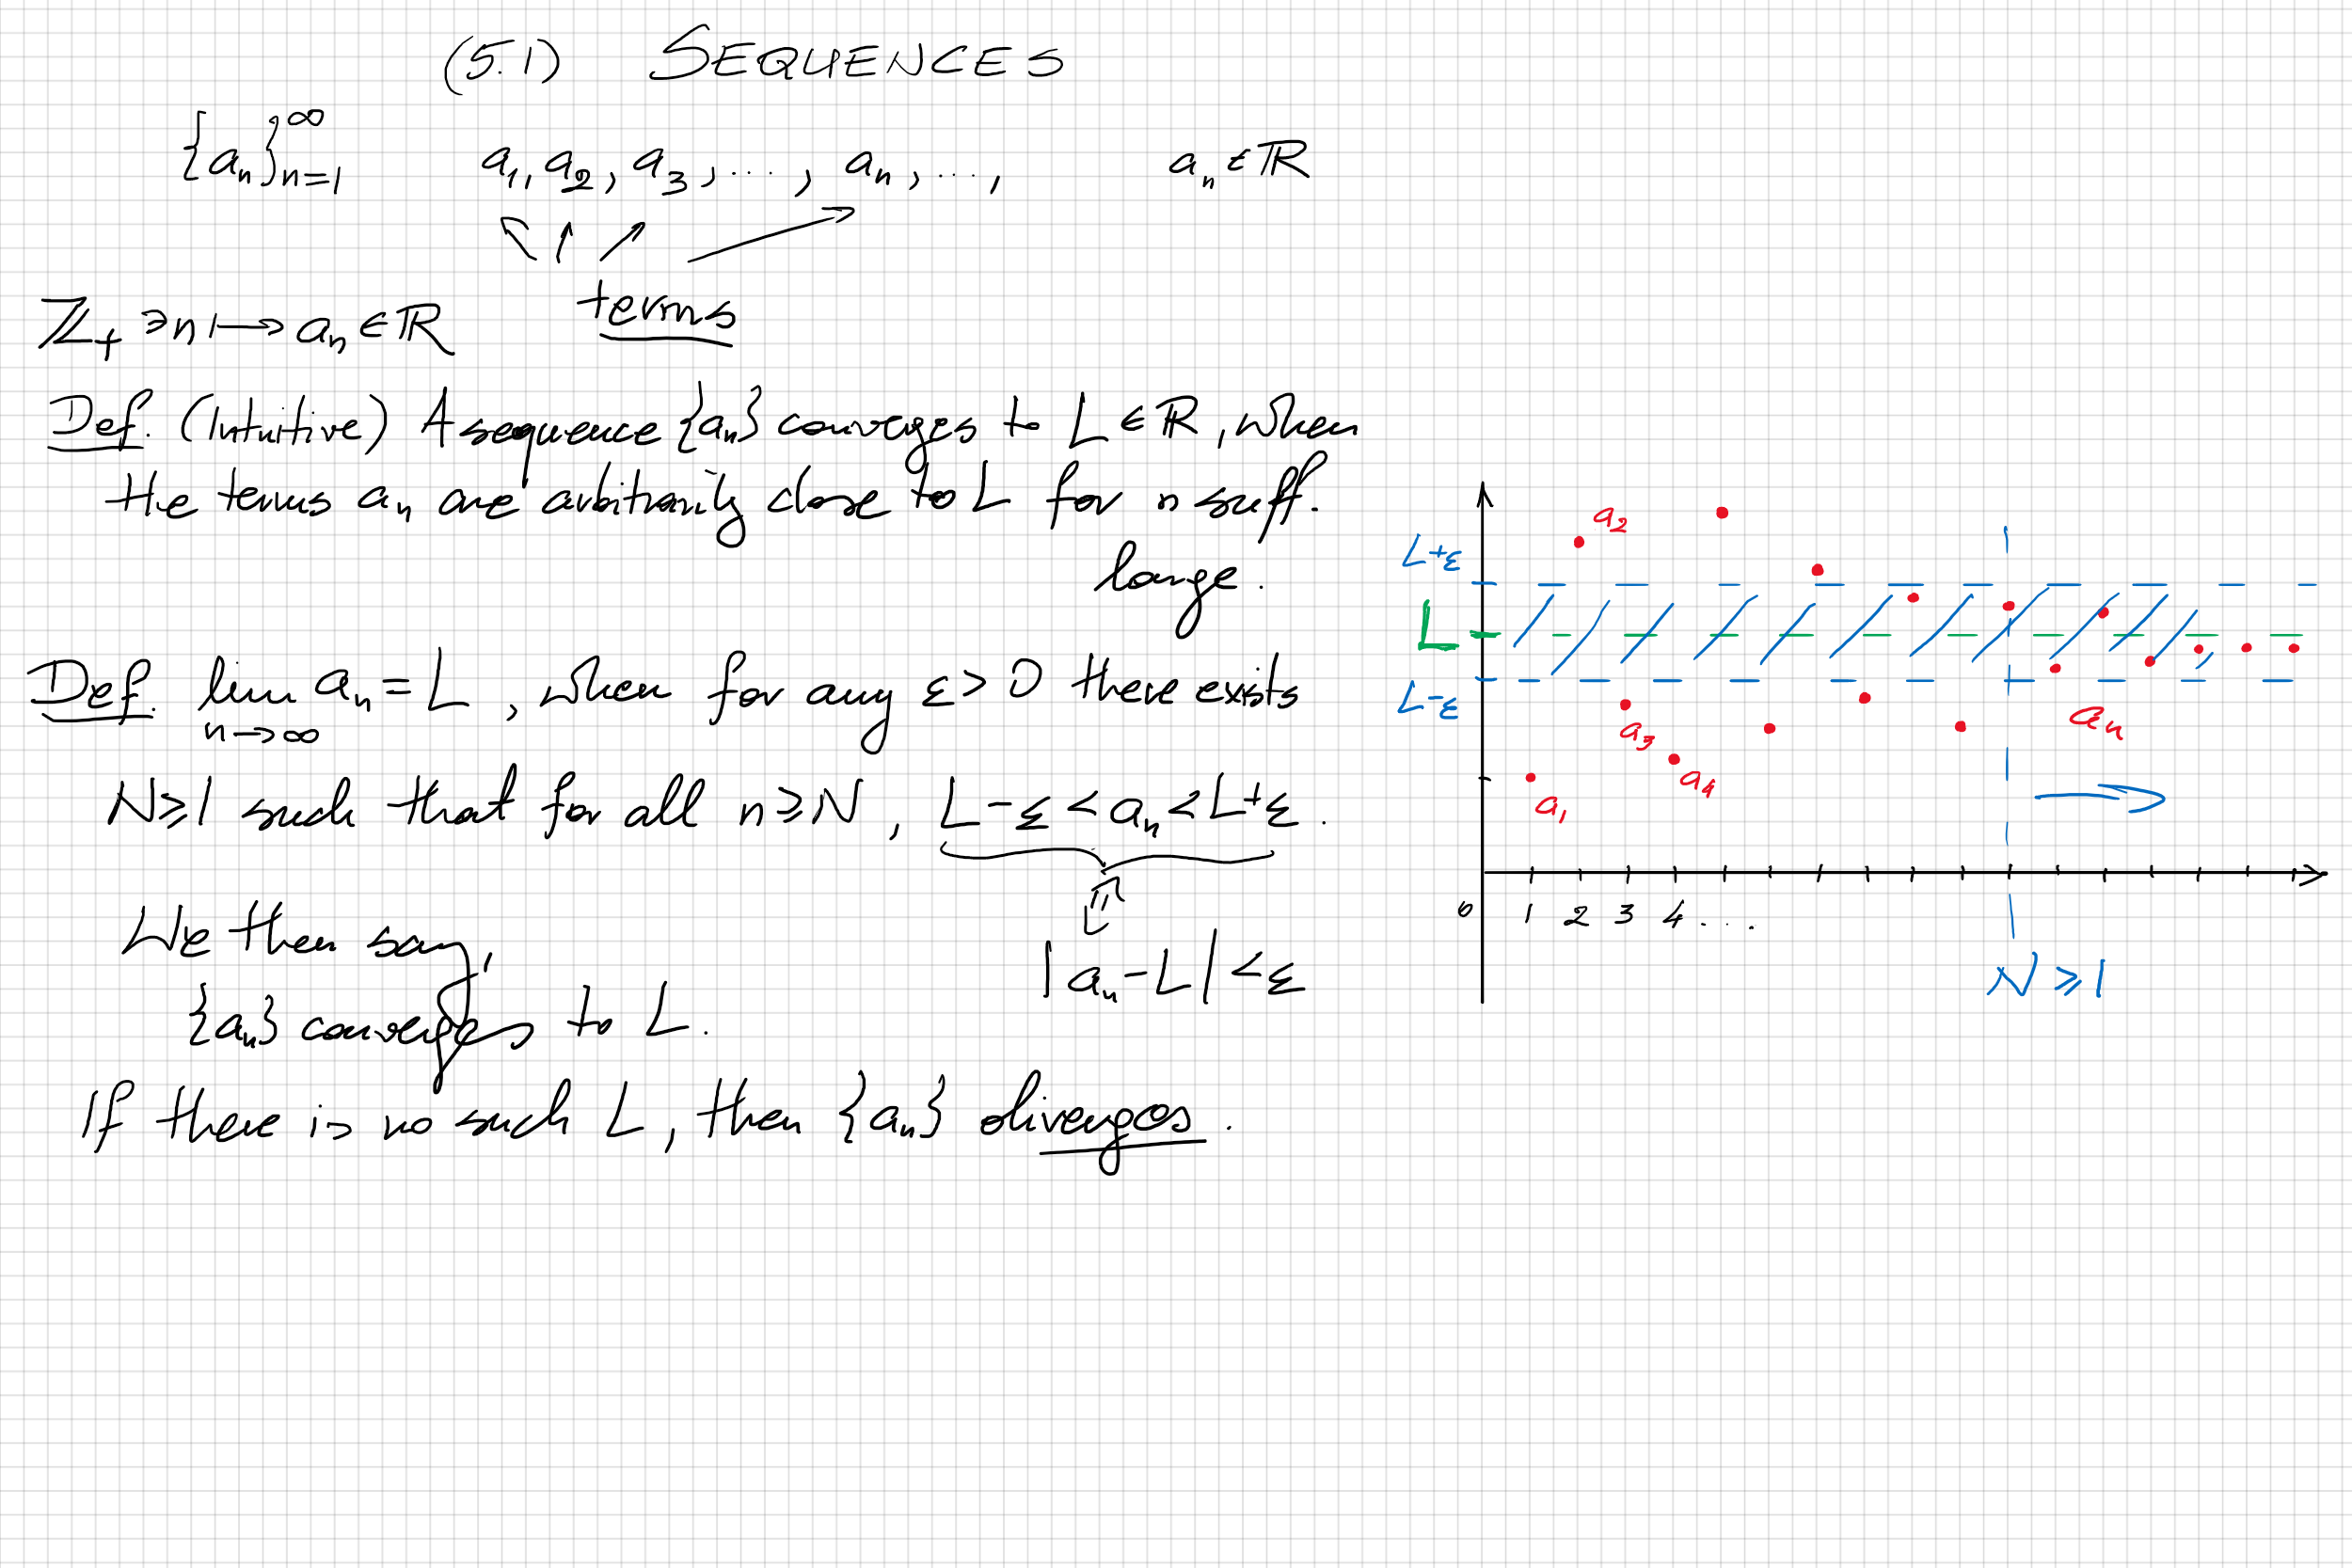 (5.1) SEQUENCES
{aₙ}ₙ₌₁^∞ a₁, a₂, a₃, ..., aₙ, ..., aₙ ∈ ℝ
terms
ℤ₊ ∋ n ↦ aₙ ∈ ℝ
Def. (Intuitive) A sequence {aₙ} converges to L ∈ ℝ, when
the terms aₙ are arbitrarily close to L for n suff.
large.
Def. lim_{n→∞} aₙ = L, when for any ε > 0 there exists
N ⩾ 1 such that for all n ⩾ N, L-ε < aₙ < L+ε.
⇕
|aₙ - L| < ε
We then say,
{aₙ} converges to L.
If there is no such L, then {aₙ} diverges.
a₂
L+ε
L
L-ε
a₃
a₄
a₁
aₙ
0 1 2 3 4 ...
N ⩾ 1